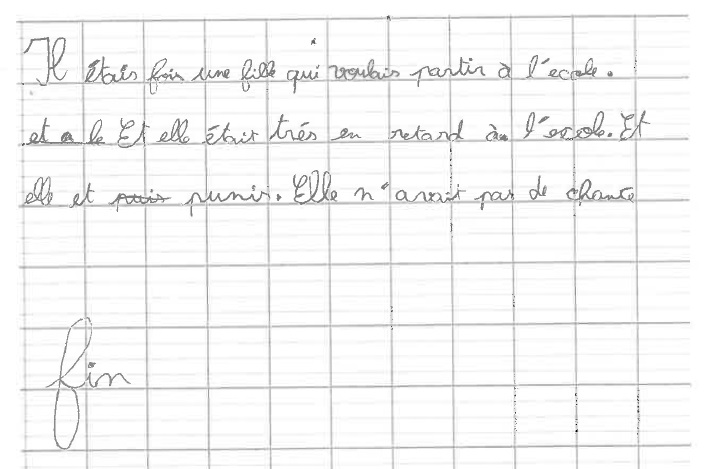 Il étais fois une fille qui voulais partir à l'ecole.
et a le Et elle était trés en retard à l'escole. Et
elle et puis punir. Elle n'avait pas de chance
fin